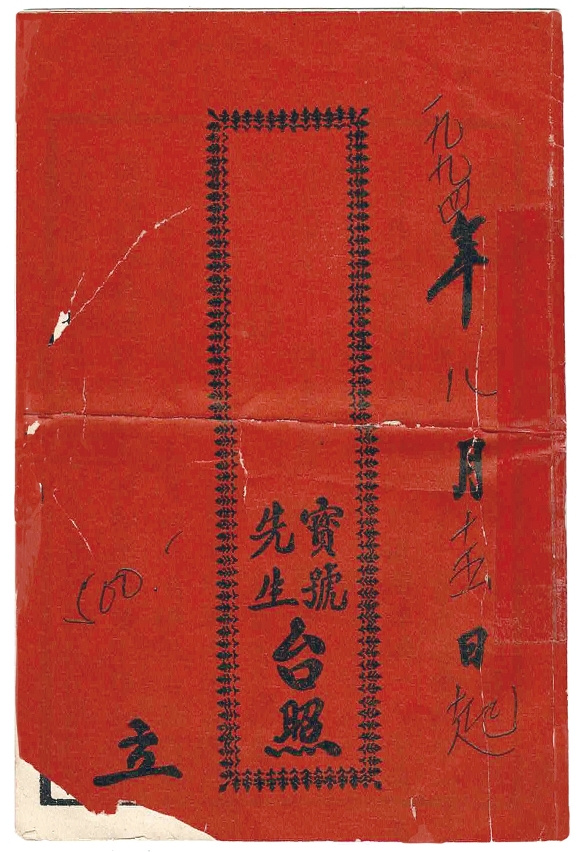 一九九四年八月十五日起
寶號
先生
台照
500.
立